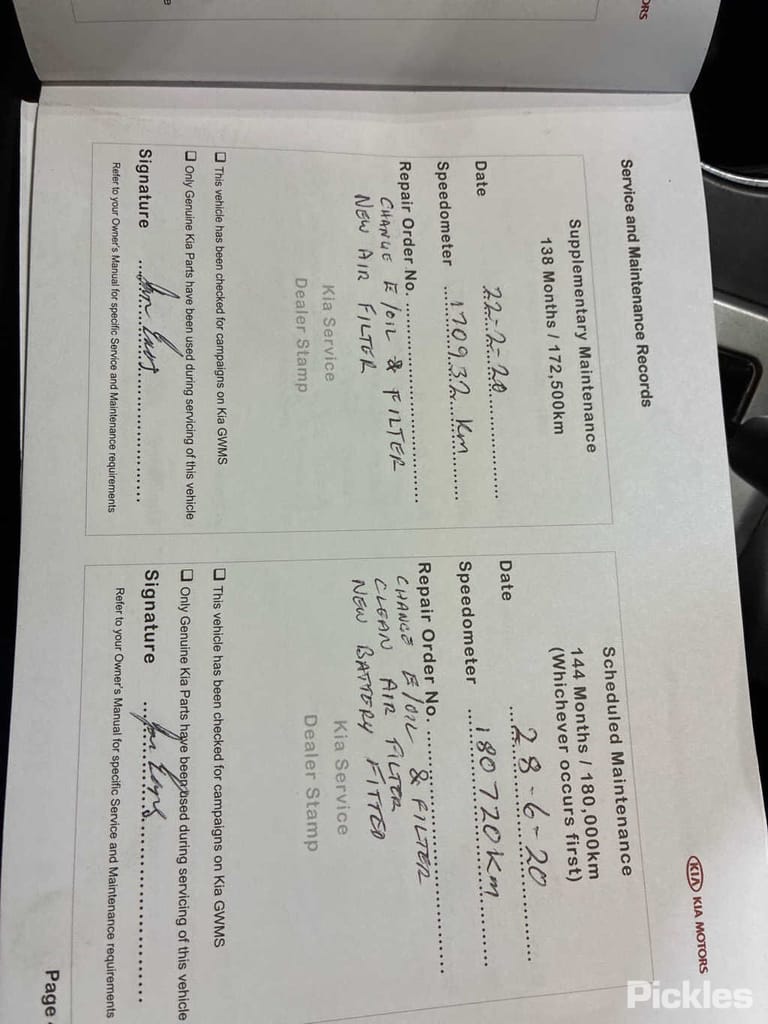 Service and Maintenance Records
KIA KIA MOTORS
Supplementary Maintenance
138 Months / 172,500km
Date 22-2-20
Speedometer 170932 KM
Repair Order No.
CHANGE E/OIL & FILTER
NEW AIR FILTER
Kia Service
Dealer Stamp
☐ This vehicle has been checked for campaigns on Kia GWMS
☐ Only Genuine Kia Parts have been used during servicing of this vehicle
Signature
Refer to your Owner's Manual for specific Service and Maintenance requirements
Scheduled Maintenance
144 Months / 180,000km
(Whichever occurs first)
Date 28-6-20
Speedometer 180720KM
Repair Order No.
CHANGE E/OIL & FILTER
CLEAN AIR FILTER
NEW BATTERY FITTED
Kia Service
Dealer Stamp
☐ This vehicle has been checked for campaigns on Kia GWMS
☐ Only Genuine Kia Parts have been used during servicing of this vehicle
Signature
Refer to your Owner's Manual for specific Service and Maintenance requirements
Page
Pickles